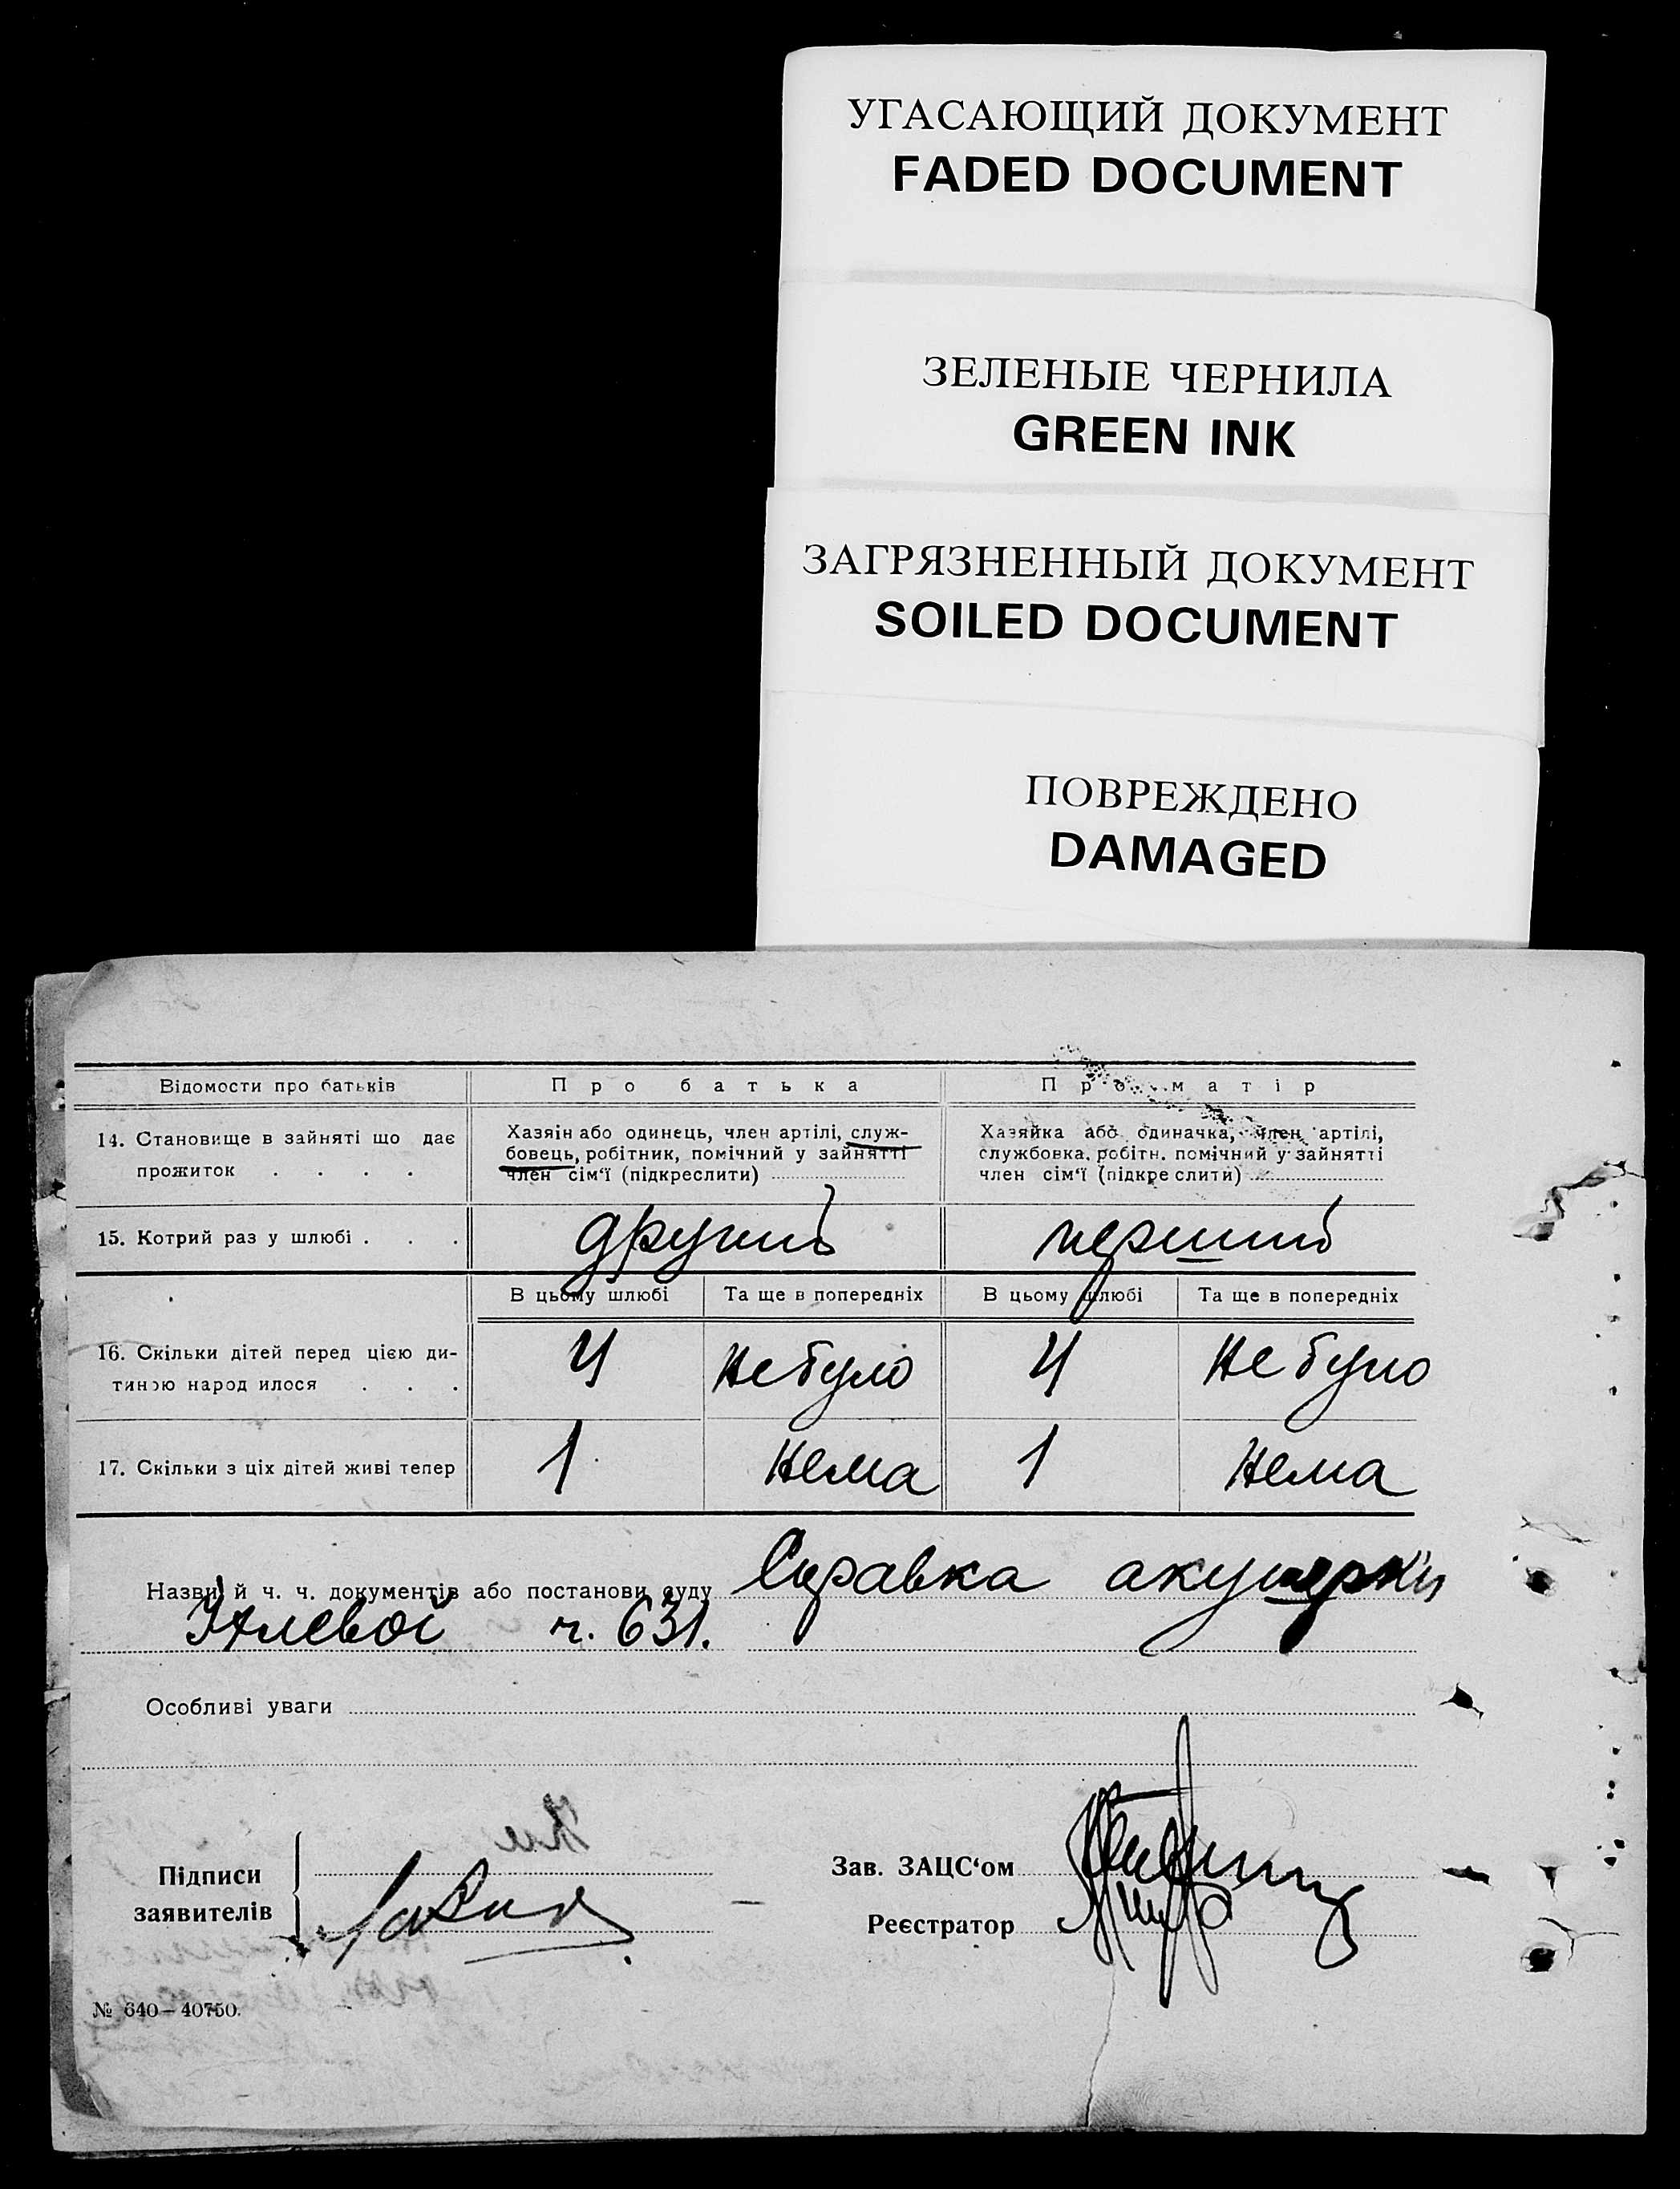 УГАСАЮЩИЙ ДОКУМЕНТ
FADED DOCUMENT
ЗЕЛЕНЫЕ ЧЕРНИЛА
GREEN INK
ЗАГРЯЗНЕННЫЙ ДОКУМЕНТ
SOILED DOCUMENT
ПОВРЕЖДЕНО
DAMAGED
Відомости про батьків Про батька Про матір
14. Становище в зайняті що дає прожиток . . . .
Хазяїн або одинець, член артілі, служ-
бовець, робітник, помічний у зайнятті
член сім'ї (підкреслити)
Хазяйка або одиначка, член артілі,
службовка, робітн. помічний у зайнятті
член сім'ї (підкреслити)
15. Котрий раз у шлюбі . . . другий перший
В цьому шлюбі Та ще в попередніх В цьому шлюбі Та ще в попередніх
16. Скільки дітей перед цією ди-
тиною народилося . . . 4 не було 4 не було
17. Скільки з ціх дітей живі тепер 1 нема 1 нема
Назви й ч. ч. документів або постанови суду Справка акушерки
ч. 631.
Особливі уваги
Підписи
заявителів
Зав. ЗАЦС'ом
Реєстратор
№ 640—40750.